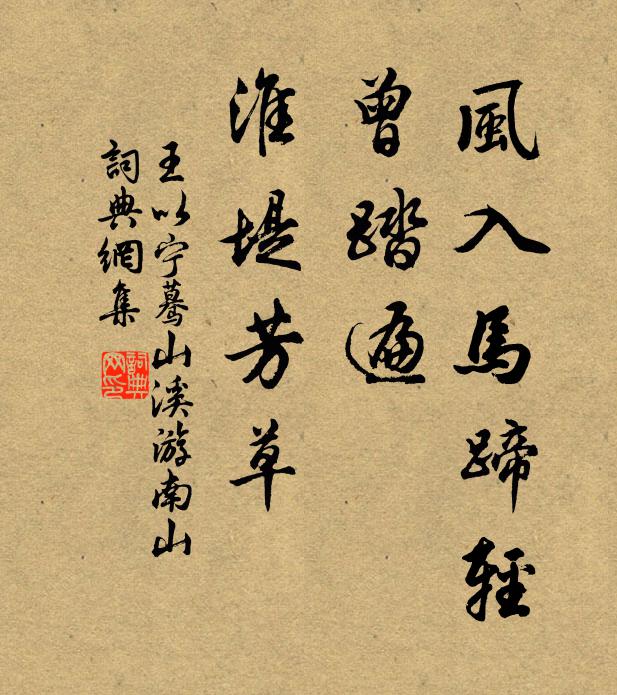 風入馬蹄輕
曾踏遍
淮堤芳草
王以宁驀山溪游南山
詞典網集
詞典网印